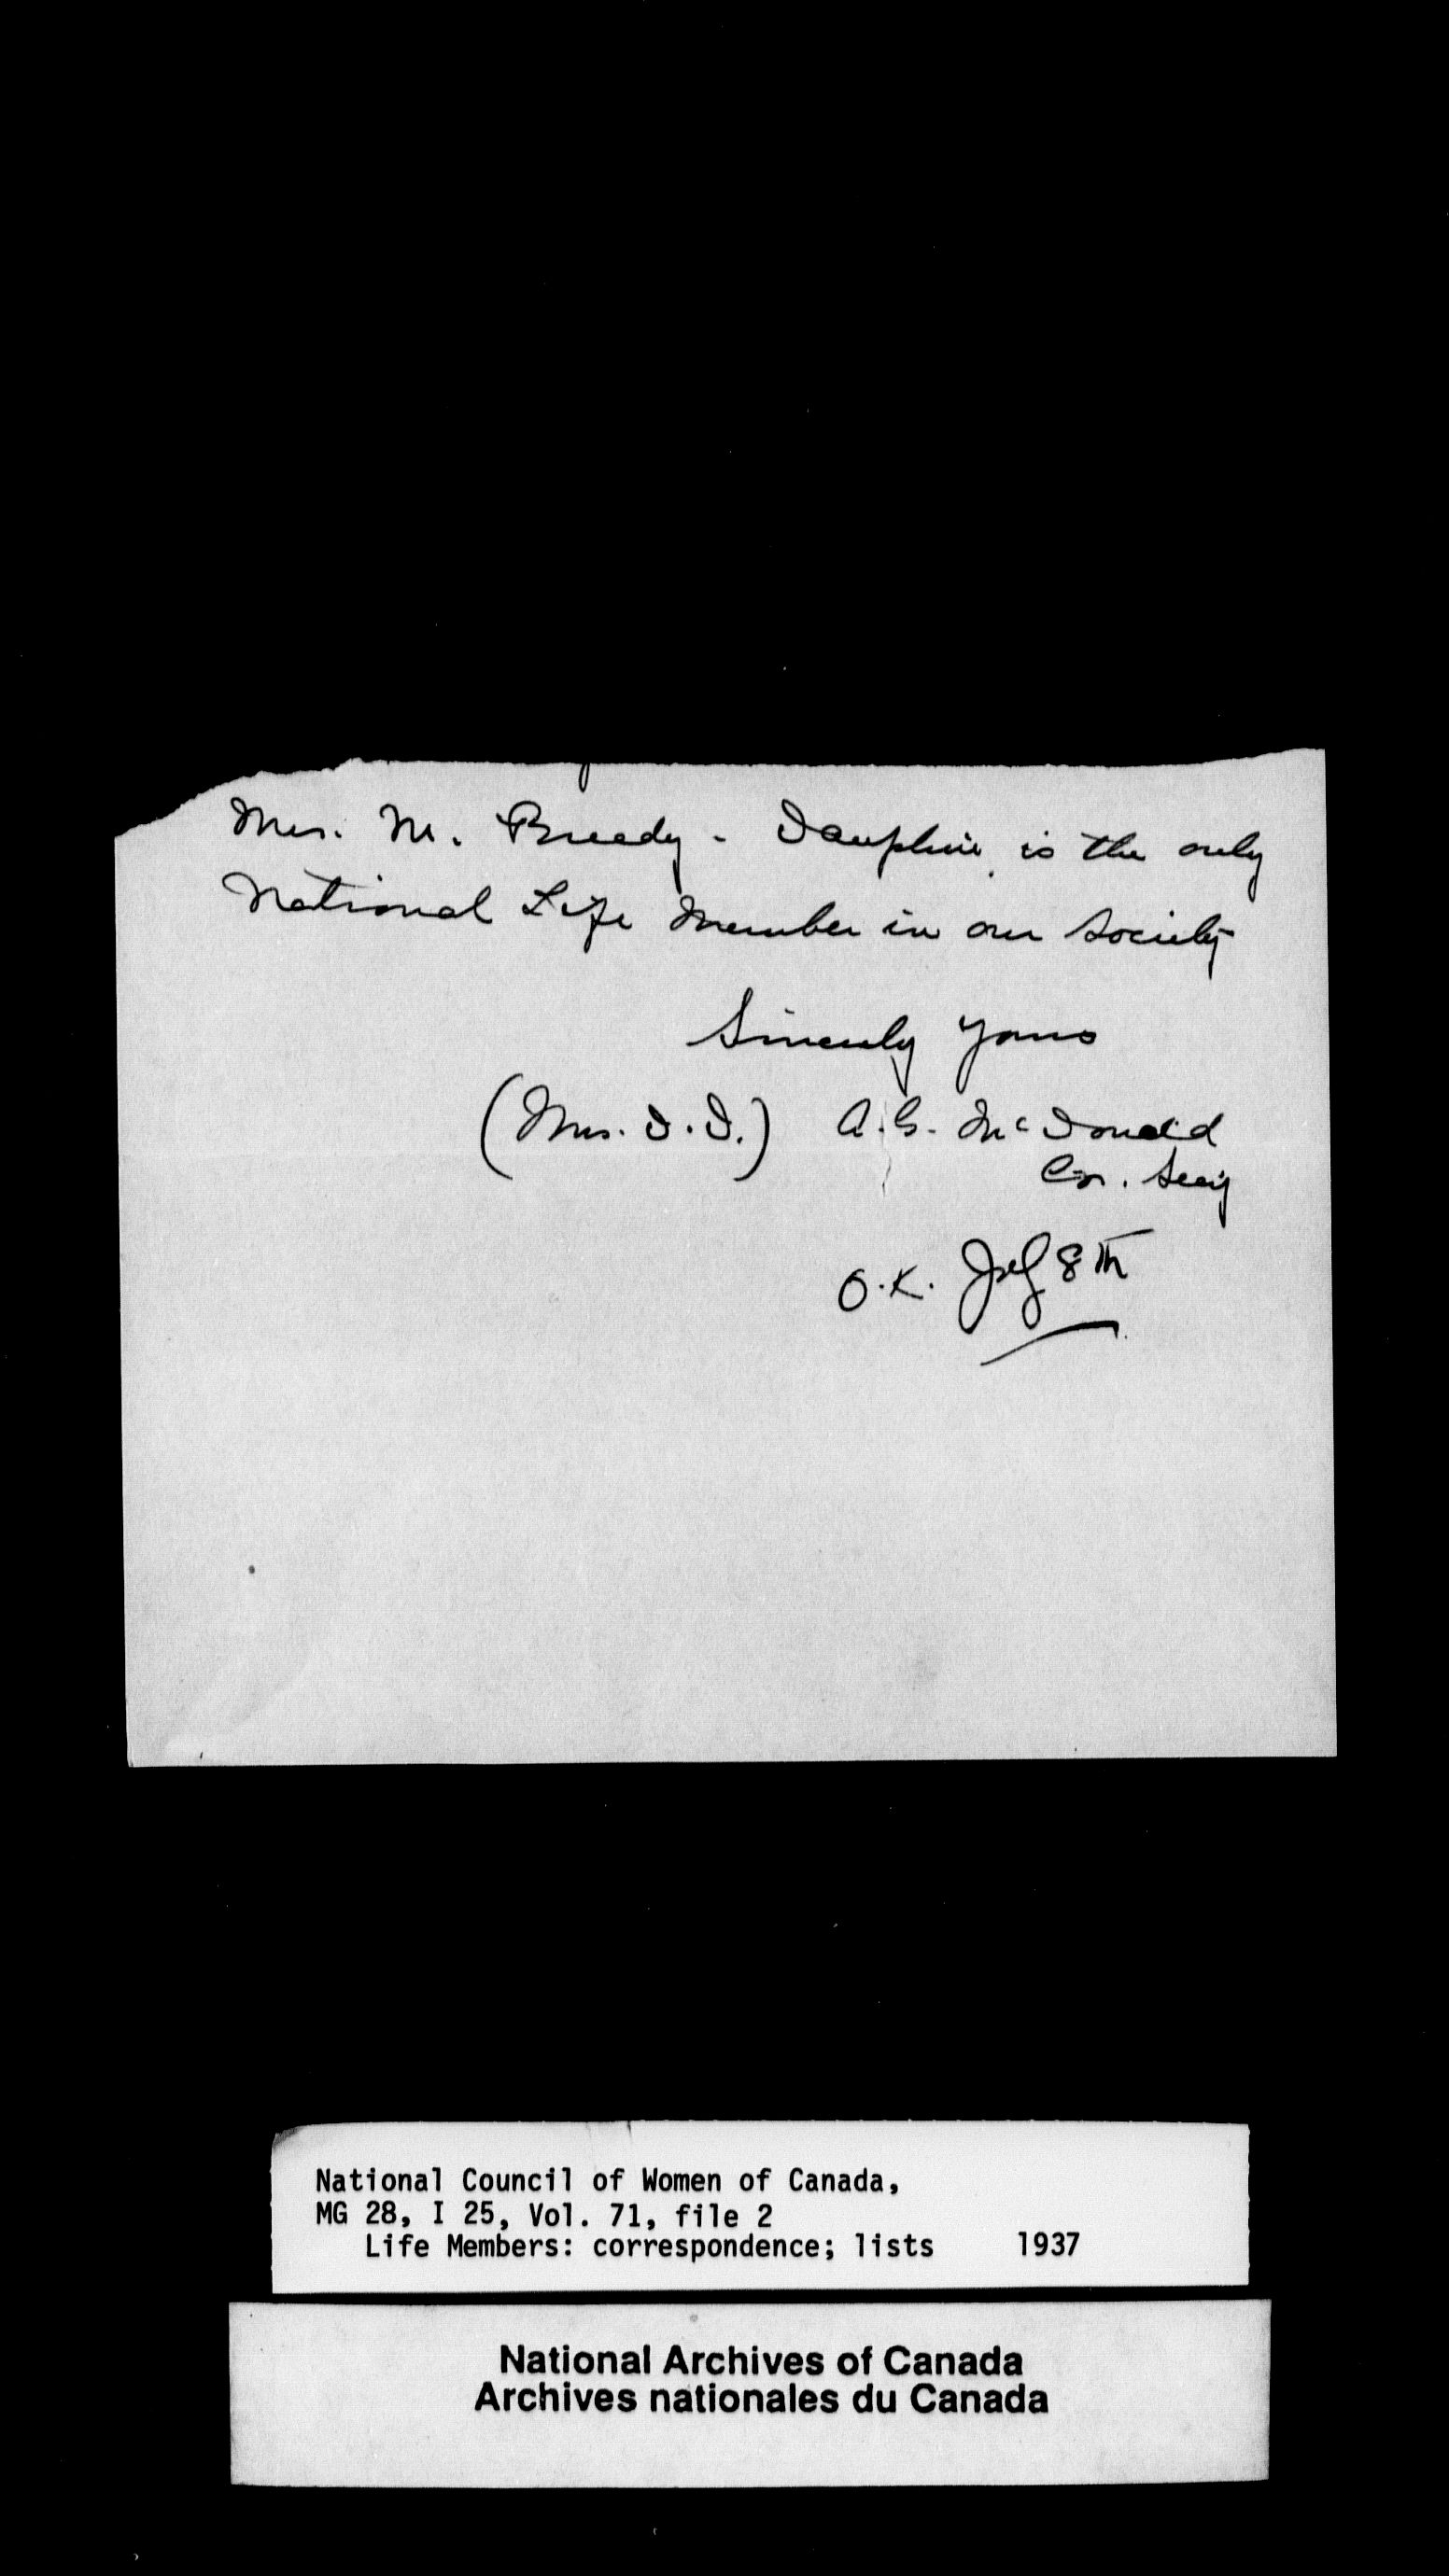 Mrs. M. Breedy - Dauphin, is the only
National Life Member in our Society
Sincerely Yours
(Mrs. D. D.) A. G. McDonald
Cor. Sec'y
O.K. July 8th
National Council of Women of Canada,
MG 28, I 25, Vol. 71, file 2
Life Members: correspondence; lists 1937
National Archives of Canada
Archives nationales du Canada